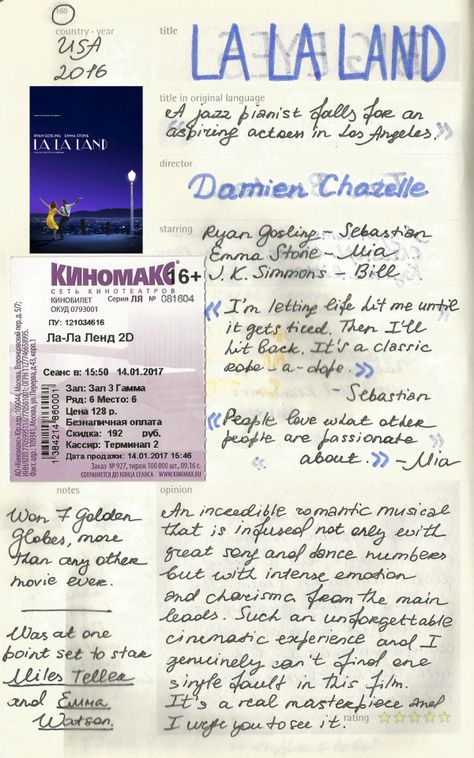 160
country - year
USA
2016
title
LA LA LAND
title in original language
A jazz pianist falls for an
aspiring actress in Los Angeles.
director
Damien Chazelle
starring
Ryan Gosling - Sebastian
Emma Stone - Mia
J. K. Simmons - Bill
RYAN GOSLING EMMA STONE
LA LA LAND
КИНОМАКС 16+
СЕТЬ КИНОТЕАТРОВ
КИНОБИЛЕТ Серия ЛЯ № 081604
ОКУД 0793001
ПУ: 121034616
Ла-Ла Ленд 2D
Сеанс в: 15:50 14.01.2017
Зал: Зал 3 Гамма
Ряд: 6 Место: 6
Цена 128 р.
Безналичная оплата
Скидка: 192 руб.
Кассир: Терминал 2
Дата продажи: 14.01.2017 15:46
Заказ № 927, тираж 100 000 шт., 09.16 г.
СОХРАНЯЕТСЯ ДО КОНЦА СЕАНСА WWW.KINOMAX.RU
«I'm letting life hit me until
it gets tired. Then I'll
hit back. It's a classic
rope - a - dope.»
- Sebastian
«People love what other
people are passionate
about.» - Mia
notes
Won 7 Golden
Globes, more
than any other
movie ever.
Was at one
point set to star
Miles Teller
and Emma
Watson.
opinion
An incredible romantic musical
that is infused not only with
great song and dance numbers
but with intense emotion
and charisma from the main
leads. Such an unforgettable
cinematic experience and I
genuinely can't find one
single fault in this film.
It's a real masterpiece and
I urge you to see it.
rating